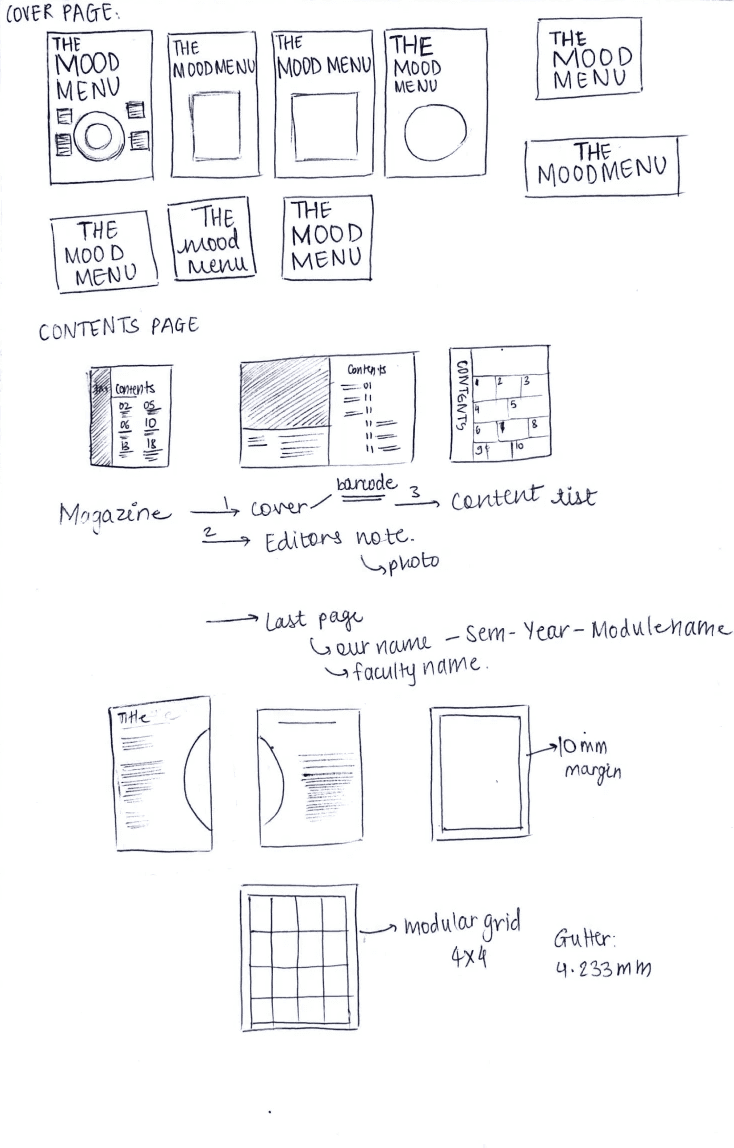 COVER PAGE:
THE
MOOD
MENU
THE
MOODMENU
THE
MOOD MENU
THE
MOOD
MENU
THE
MOOD
MENU
THE
MOODMENU
THE
MOOD
MENU
THE
mood
menu
THE
MOOD
MENU
CONTENTS PAGE
Contents
02 05
06 10
13 18
Contents
01
11
11
11
11
11
CONTENTS
1 2 3
4 5
6 8
9 10
Magazine 1 cover barcode 3 content list
2 Editors note.
photo
Last page
our name - Sem - Year - Module name
faculty name.
Title
10 mm
margin
modular grid
4x4
Gutter:
4.233 mm